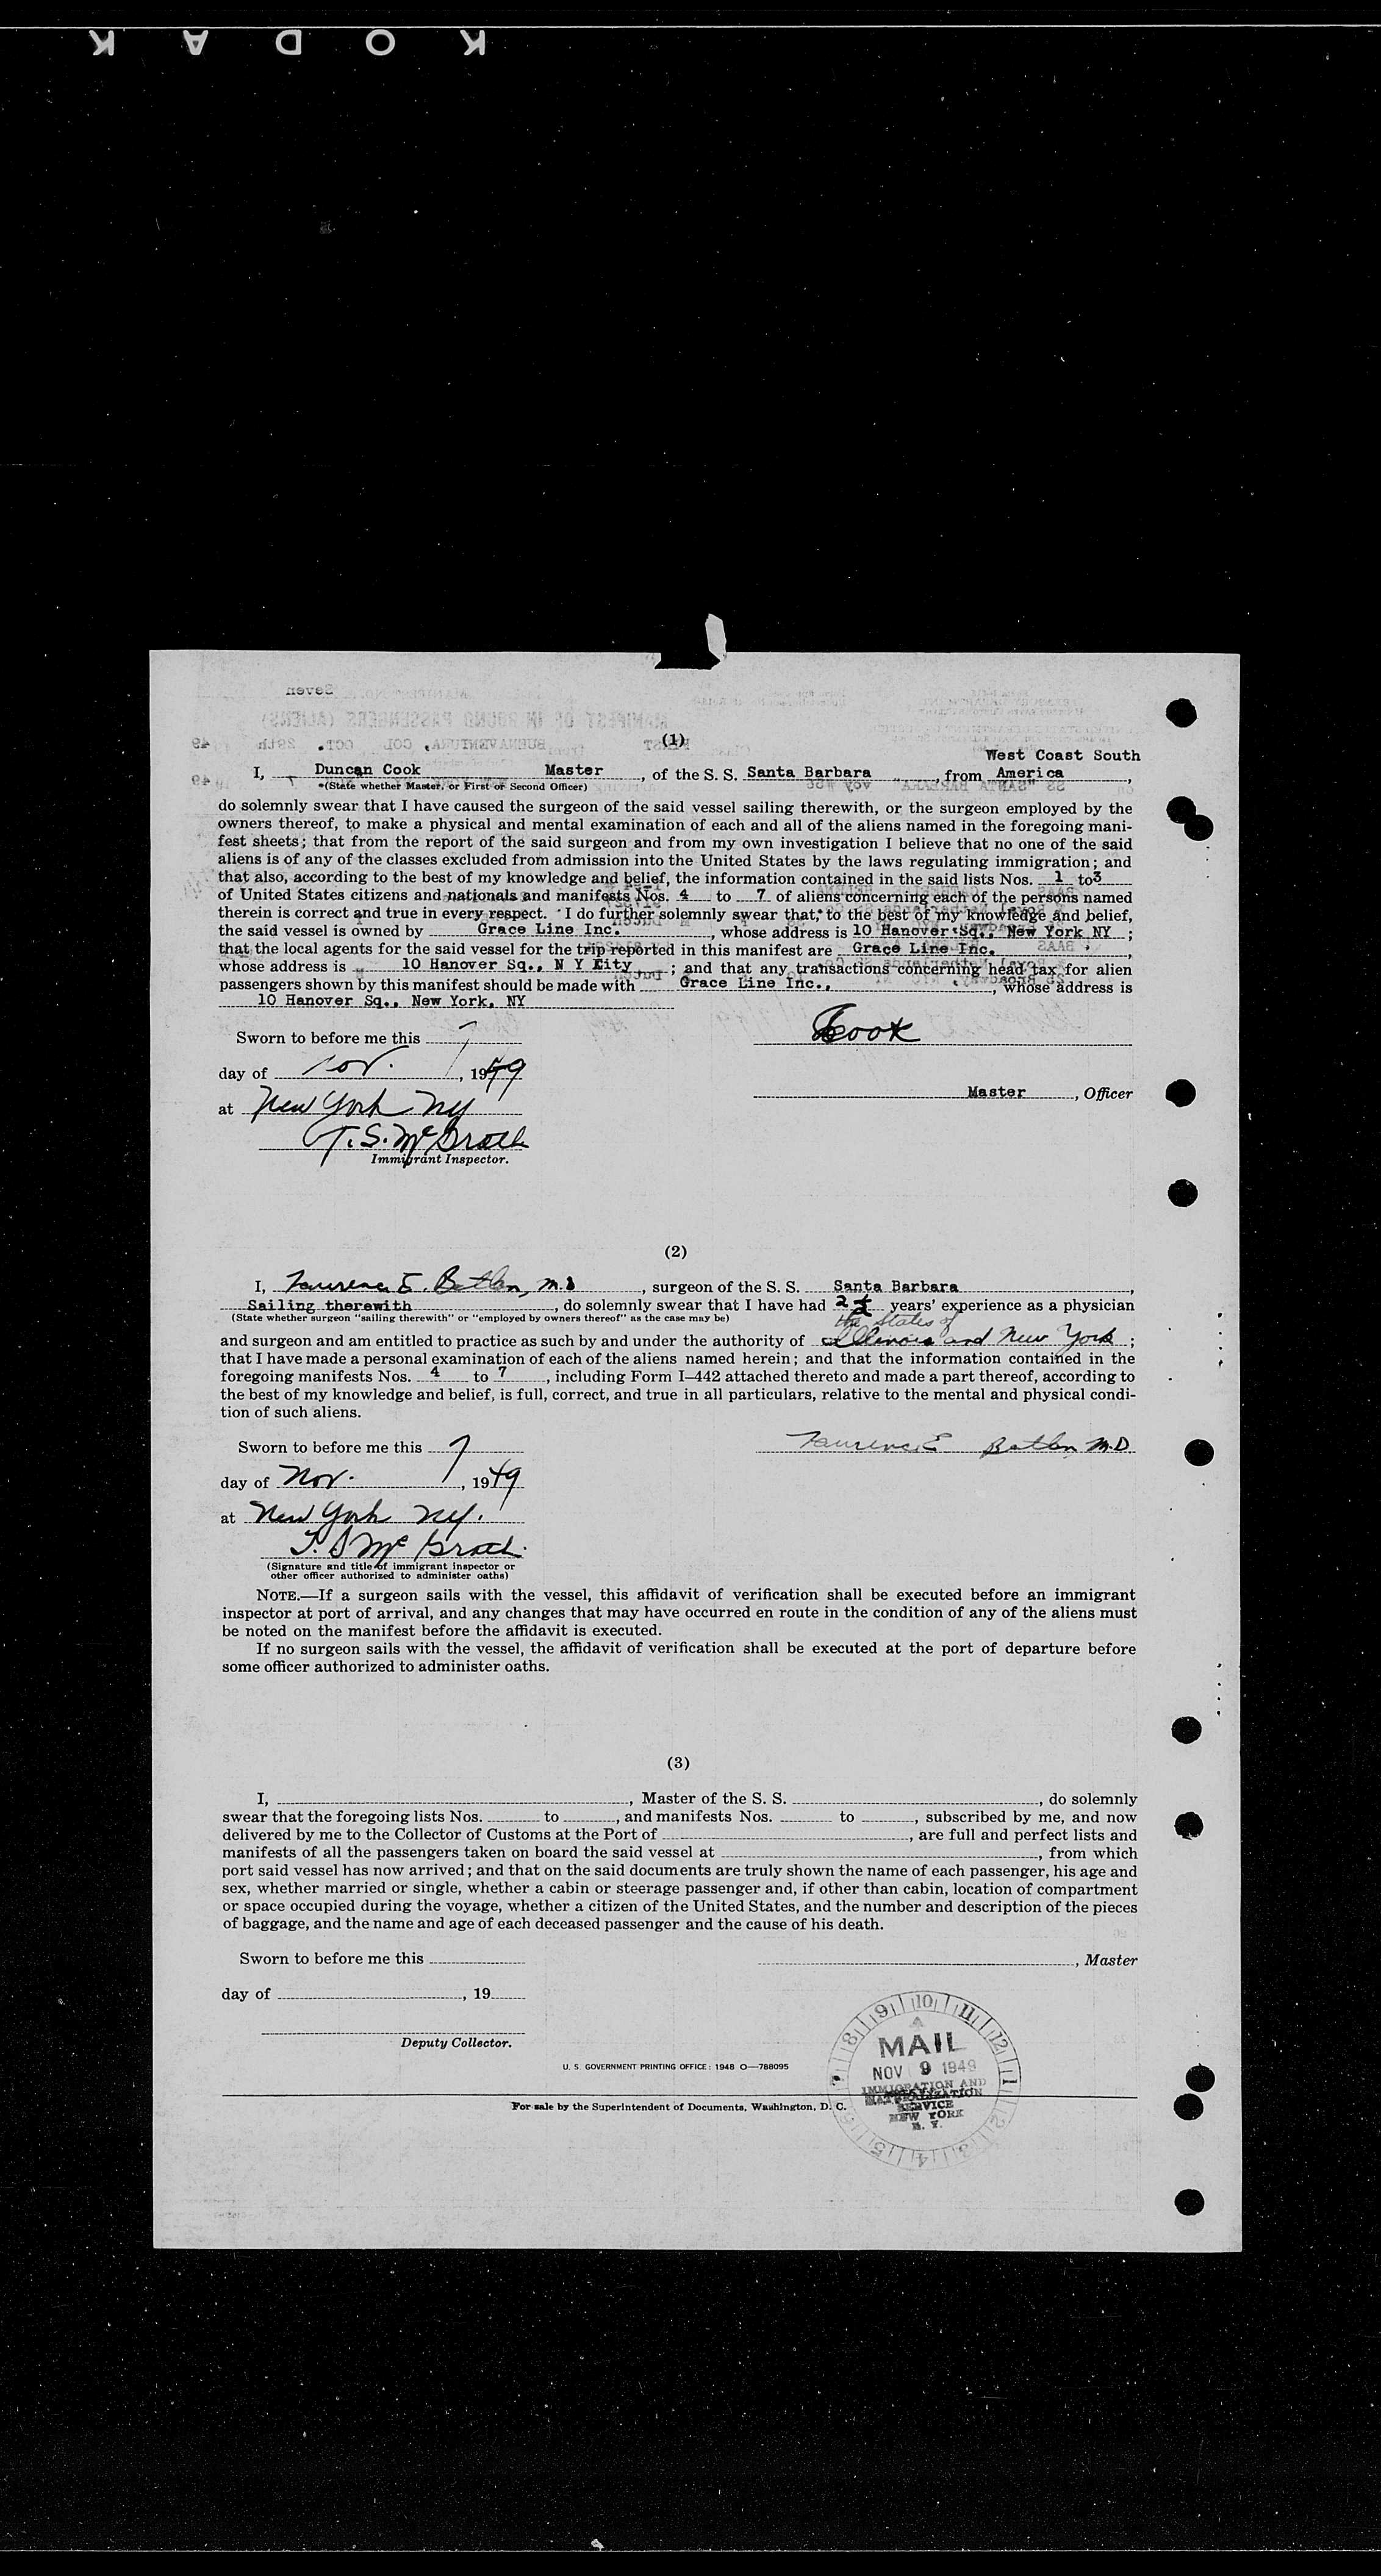 KODAK
(1)
West Coast South
I, Duncan Cook Master, of the S. S. Santa Barbara, from America,
*(State whether Master, or First or Second Officer)
do solemnly swear that I have caused the surgeon of the said vessel sailing therewith, or the surgeon employed by the
owners thereof, to make a physical and mental examination of each and all of the aliens named in the foregoing mani-
fest sheets; that from the report of the said surgeon and from my own investigation I believe that no one of the said
aliens is of any of the classes excluded from admission into the United States by the laws regulating immigration; and
that also, according to the best of my knowledge and belief, the information contained in the said lists Nos. 1 to 3
of United States citizens and nationals and manifests Nos. 4 to 7 of aliens concerning each of the persons named
therein is correct and true in every respect. I do further solemnly swear that, to the best of my knowledge and belief,
the said vessel is owned by Grace Line Inc., whose address is 10 Hanover Sq., New York NY ;
that the local agents for the said vessel for the trip reported in this manifest are Grace Line Inc.,
whose address is 10 Hanover Sq., N Y City ; and that any transactions concerning head tax for alien
passengers shown by this manifest should be made with Grace Line Inc., , whose address is
10 Hanover Sq., New York, NY
Sworn to before me this 7 Cook
day of Nov. , 1949
Master , Officer
at New York NY
T. S. McGrath
Immigrant Inspector.
(2)
I, Laurence E. , M.D , surgeon of the S. S. Santa Barbara ,
Sailing therewith , do solemnly swear that I have had 2½ years' experience as a physician
(State whether surgeon "sailing therewith" or "employed by owners thereof" as the case may be) the States of
and surgeon and am entitled to practice as such by and under the authority of Illinois and New York ;
that I have made a personal examination of each of the aliens named herein; and that the information contained in the
foregoing manifests Nos. 4 to 7 , including Form I–442 attached thereto and made a part thereof, according to
the best of my knowledge and belief, is full, correct, and true in all particulars, relative to the mental and physical condi-
tion of such aliens.
Sworn to before me this 7 Laurence E M.D
day of Nov. , 1949
at New York NY.
T. S McGrath
(Signature and title of immigrant inspector or
other officer authorized to administer oaths)
NOTE.—If a surgeon sails with the vessel, this affidavit of verification shall be executed before an immigrant
inspector at port of arrival, and any changes that may have occurred en route in the condition of any of the aliens must
be noted on the manifest before the affidavit is executed.
If no surgeon sails with the vessel, the affidavit of verification shall be executed at the port of departure before
some officer authorized to administer oaths.
(3)
I, , Master of the S. S. , do solemnly
swear that the foregoing lists Nos. to , and manifests Nos. to , subscribed by me, and now
delivered by me to the Collector of Customs at the Port of , are full and perfect lists and
manifests of all the passengers taken on board the said vessel at , from which
port said vessel has now arrived; and that on the said documents are truly shown the name of each passenger, his age and
sex, whether married or single, whether a cabin or steerage passenger and, if other than cabin, location of compartment
or space occupied during the voyage, whether a citizen of the United States, and the number and description of the pieces
of baggage, and the name and age of each deceased passenger and the cause of his death.
Sworn to before me this , Master
day of , 19
Deputy Collector.
MAIL
NOV 9 1949
IMMIGRATION AND
NATURALIZATION
SERVICE
NEW YORK
N. Y.
U. S. GOVERNMENT PRINTING OFFICE: 1948 O—788095
For sale by the Superintendent of Documents, Washington, D. C.